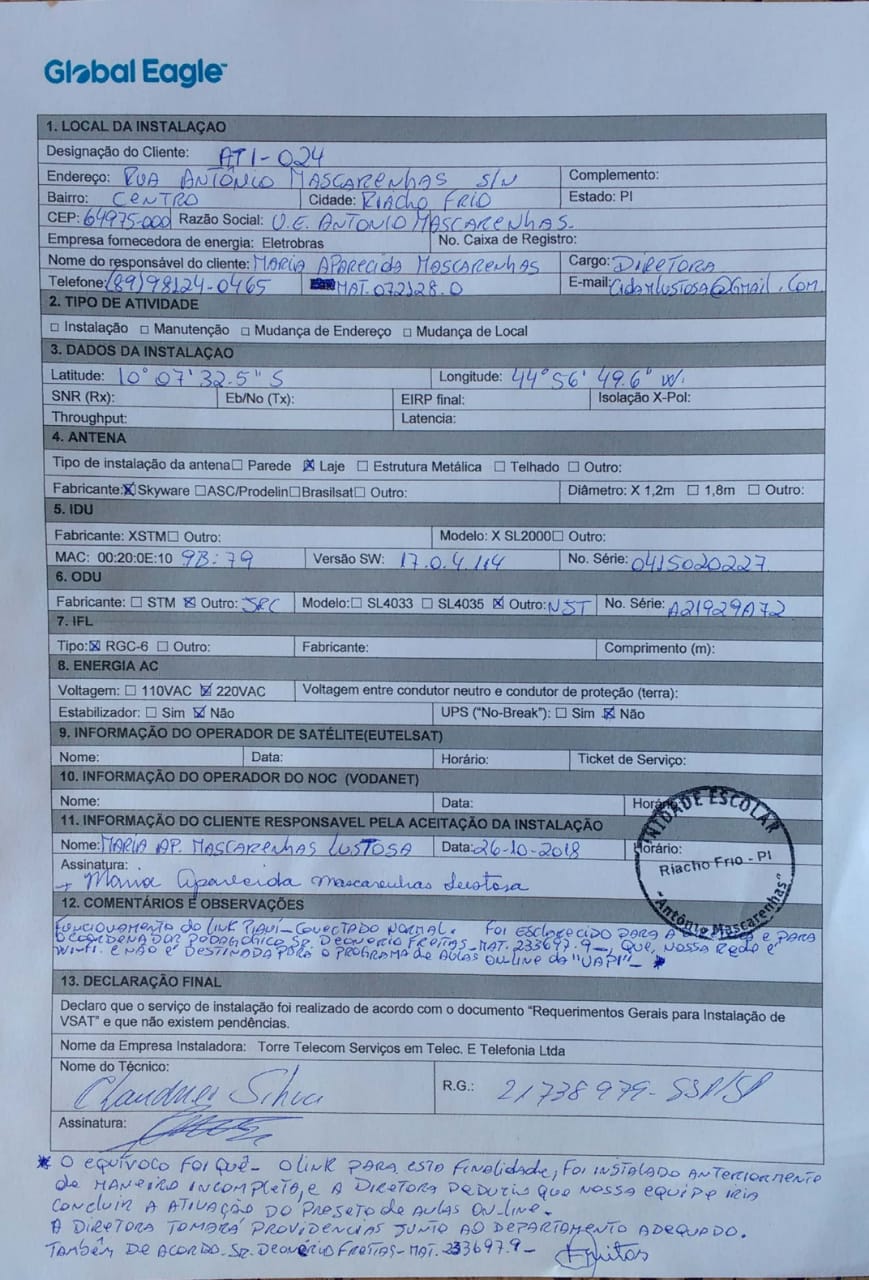 Global Eagle
1. LOCAL DA INSTALAÇAO
Designação do Cliente: ATI-024
Endereço: RUA ANTÔNIO MASCARENHAS S/N Complemento:
Bairro: CENTRO Cidade: RIACHO FRIO Estado: PI
CEP: 64975-000 Razão Social: U.E. ANTONIO MASCARENHAS.
Empresa fornecedora de energia: Eletrobras No. Caixa de Registro:
Nome do responsável do cliente: MARIA APARECIDA MASCARENHAS Cargo: DIRETORA
Telefone: (89) 98124-0465 MAT. 072128.0 E-mail: cidamlustosa@gmail.com
2. TIPO DE ATIVIDADE
☐ Instalação ☐ Manutenção ☐ Mudança de Endereço ☐ Mudança de Local
3. DADOS DA INSTALAÇAO
Latitude: 10° 07' 32.5" S Longitude: 44° 56' 49.6" W.
SNR (Rx): Eb/No (Tx): EIRP final: Isolação X-Pol:
Throughput: Latencia:
4. ANTENA
Tipo de instalação da antena ☐ Parede ☒ Laje ☐ Estrutura Metálica ☐ Telhado ☐ Outro:
Fabricante: ☒ Skyware ☐ ASC/Prodelin ☐ Brasilsat ☐ Outro: Diâmetro: X 1,2m ☐ 1,8m ☐ Outro:
5. IDU
Fabricante: XSTM ☐ Outro: Modelo: X SL2000 ☐ Outro:
MAC: 00:20:0E:10 9B:79 Versão SW: 17.0.4.1.14 No. Série: 0415020227
6. ODU
Fabricante: ☐ STM ☒ Outro: JRC Modelo: ☐ SL4033 ☐ SL4035 ☒ Outro: NJT No. Série: A21929A72
7. IFL
Tipo: ☒ RGC-6 ☐ Outro: Fabricante: Comprimento (m):
8. ENERGIA AC
Voltagem: ☐ 110VAC ☒ 220VAC Voltagem entre condutor neutro e condutor de proteção (terra):
Estabilizador: ☐ Sim ☒ Não UPS ("No-Break"): ☐ Sim ☒ Não
9. INFORMAÇÃO DO OPERADOR DE SATÉLITE(EUTELSAT)
Nome: Data: Horário: Ticket de Serviço:
10. INFORMAÇÃO DO OPERADOR DO NOC (VODANET)
Nome: Data: Horário:
11. INFORMAÇÃO DO CLIENTE RESPONSAVEL PELA ACEITAÇÃO DA INSTALAÇÃO
Nome: MARIA AP. MASCARENHAS LUSTOSA Data: 26-10-2018 Horário:
UNIDADE ESCOLAR
Riacho Frio - PI
"Antônio Mascarenhas"
Assinatura:
Maria Aparecida Mascarenhas Lustosa
12. COMENTÁRIOS E OBSERVAÇÕES
FUNCIONAMENTO do LINK PIAUÍ-CONECTADO NORMAL. FOI ESCLARECIDO PARA A E PARA
O COORDENADOR PEDAGÓGICO SR. DEONERIO FREITAS-MAT. 233697.9-, QUE, NOSSA REDE É
WI-FI. E NÃO É DESTINADA PARA O PROGRAMA de AULAS ON-LINE da "UAPI"- *
13. DECLARAÇÃO FINAL
Declaro que o serviço de instalação foi realizado de acordo com o documento "Requerimentos Gerais para Instalação de
VSAT" e que não existem pendências.
Nome da Empresa Instaladora: Torre Telecom Serviços em Telec. E Telefonia Ltda
Nome do Técnico:
Claudnei Silva R.G.: 21738979-SSP/SP
Assinatura:
* O equívoco foi quê- O LINK PARA ESTA FINALIDADE, FOI INSTALADO ANTERIORMENTE
de MANEIRA INCOMPLETA, e A DIRETORA DEDUZIU QUE NOSSA EQUIPE IRIA
CONCLUIR A ATIVAÇÃO DO PROJETO de AULAS ON-LINE.
A DIRETORA TOMARÁ PROVIDENCIAS JUNTO AO DEPARTAMENTO ADEQUADO.
TAMBÉM DE ACORDO. SR. DEONERIO FREITAS-MAT. 233697.9- Freitas